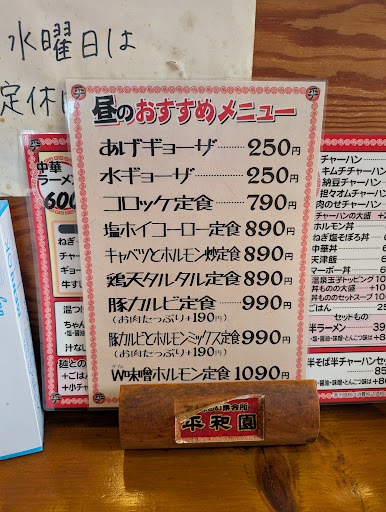 水曜日は
定休
昼のおすすめメニュー
あげギョーザ 250円
水ギョーザ 250円
コロッケ定食 790円
塩ホイコーロー定食 890円
キャベツとホルモン炒定食 890円
鶏天タルタル定食 890円
豚カルビ定食 990円
(お肉たっぷり+190円)
豚カルビとホルモンミックス定食 990円
(お肉たっぷり+190円)
W味噌ホルモン定食 1090円
平和園
中華
ラーメン
600
ねぎ
チャー
ギョー
牛す
温つ
ちゃん
汁な
麺と
+ごはん
+小チャ
チャーハン
キムチチャーハン
納豆チャーハン
担々オムチャーハン
肉のせチャーハン
チャーハンの大盛
ホルモン丼
ねぎ塩そぼろ丼
中華丼
天津飯
マーボー丼
温泉玉子トッピング
丼ものの大盛
丼もののセットスープ
ごはん 25
セットもの
半ラーメン
半そば半チャーハンセ
85